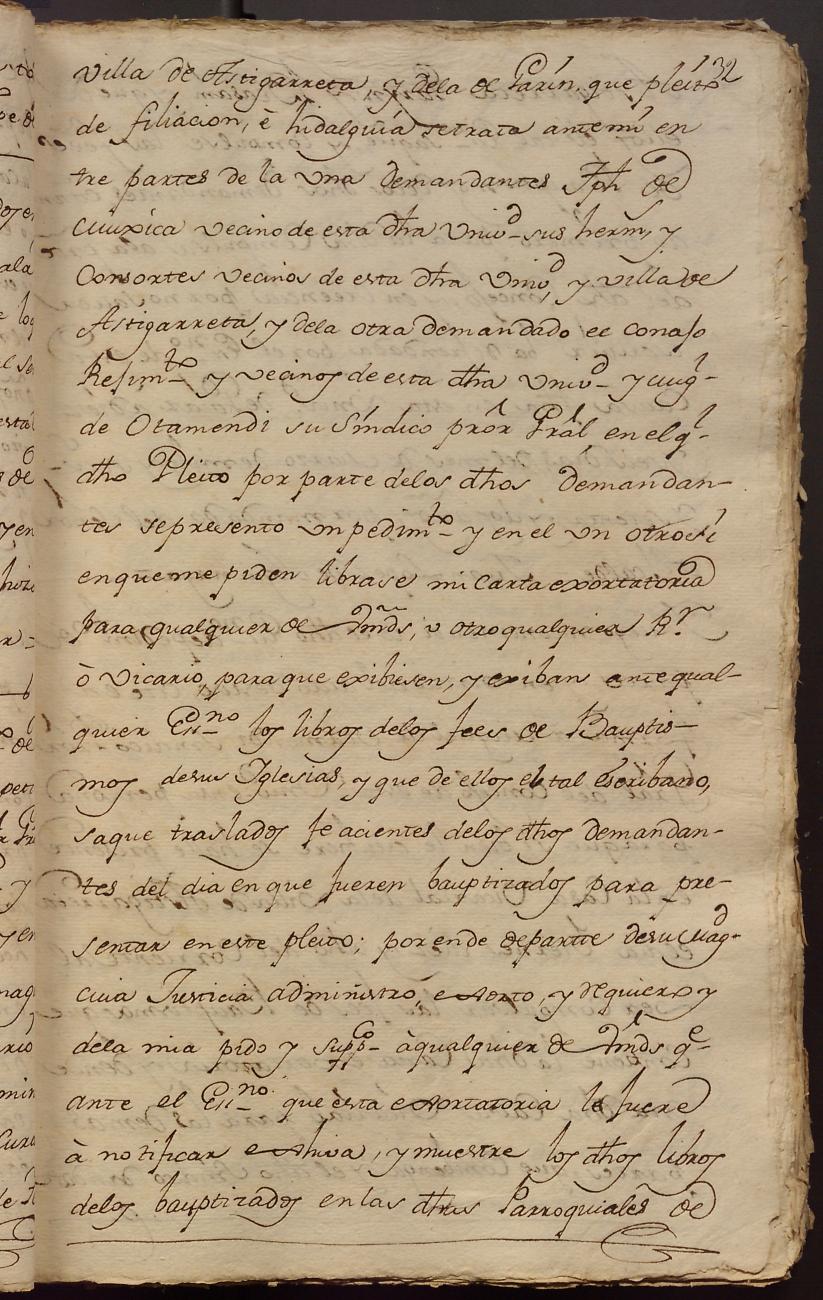 32
villa de Astigarreta, y dela de Garin, que pleito
de filiacion, è hidalguia setrata antemi en
tre partes de la una demandantes Jph de
vecino de esta dha Univd sus herms, y
Consortes vecinos de esta dha Univd, y villa de
Astigarreta, y dela otra demandado el conzejo
Rejimto y vecinos de esta dha Univd y
de Otamendi su Síndico prôr Grâl, en el ql
dho Pleito por parte delos dhos demandan-
tes sepresento un pedimto y en el un otrosi
enqueme piden librase mi Carta exortatoria
para qualquier de Vmds, v otroqualquier Rr
ò Vicario, para que exibiesen, y exiban ante qual-
quier Essno los libros delos fees de Bauptis-
mos desus Iglesias, y que de ellos el tal Escribano,
saque traslados feacientes delos dhos demandan-
tes del dia en que fueren bauptizados para pre-
sentar en este pleito; porende departte desu Magd
cuia Justicia administro, exorto, y requiero y
dela mia pido y suppco àqualquier de Vmds qe
ante el Essno que esta exortatoria le fuere
à notificar exhiva, y muestre los dhos libros
delos bauptizados en las dhas Parroquiales de